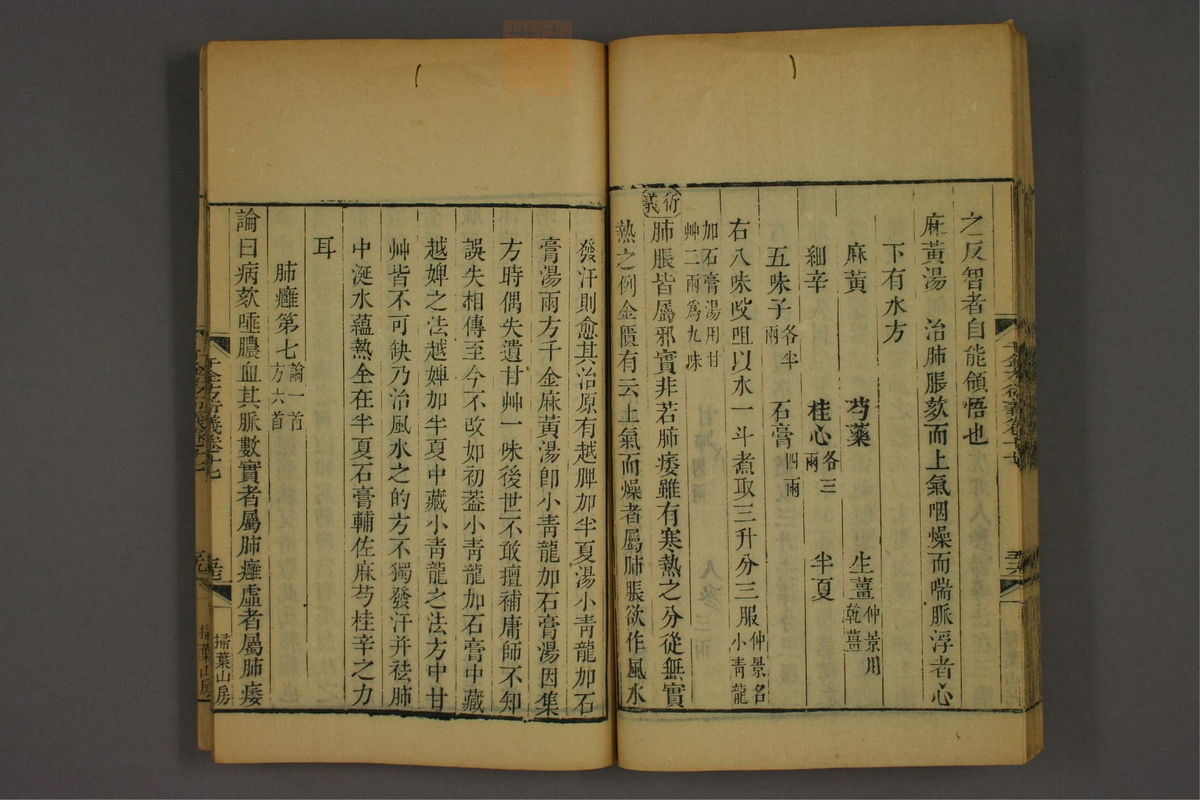 之反智者自能領悟也
麻黃湯　治肺脹欬而上氣咽燥而喘脈浮者心
下有水方
麻黃　芍藥　生薑仲景用乾薑
細辛　桂心各三兩　半夏
五味子各半兩　石膏四兩
右八味㕮咀以水一斗煮取三升分三服仲景名小靑龍
加石膏湯用甘艸二兩爲九味
衍義
肺脹皆屬邪實非若肺痿雖有寒熱之分從無實
熱之例金匱有云上氣而燥者屬肺脹欲作風水
發汗則愈其治原有越脾加半夏湯小靑龍加石
膏湯兩方千金麻黃湯卽小靑龍加石膏湯因集
方時偶失遺甘艸一味後世不敢擅補庸師不知
誤失相傳至今不改如初葢小靑龍加石膏中藏
越婢之法越婢加半夏中藏小靑龍之法方中甘
艸皆不可缺乃治風水之的方不獨發汗并祛肺
中涎水蘊熱全在半夏石膏輔佐麻芍桂辛之力
耳
肺癰第七論一首方六首
論曰病欬唾膿血其脈數實者屬肺癰虛者屬肺痿
千金方衍義卷十七
掃葉山房